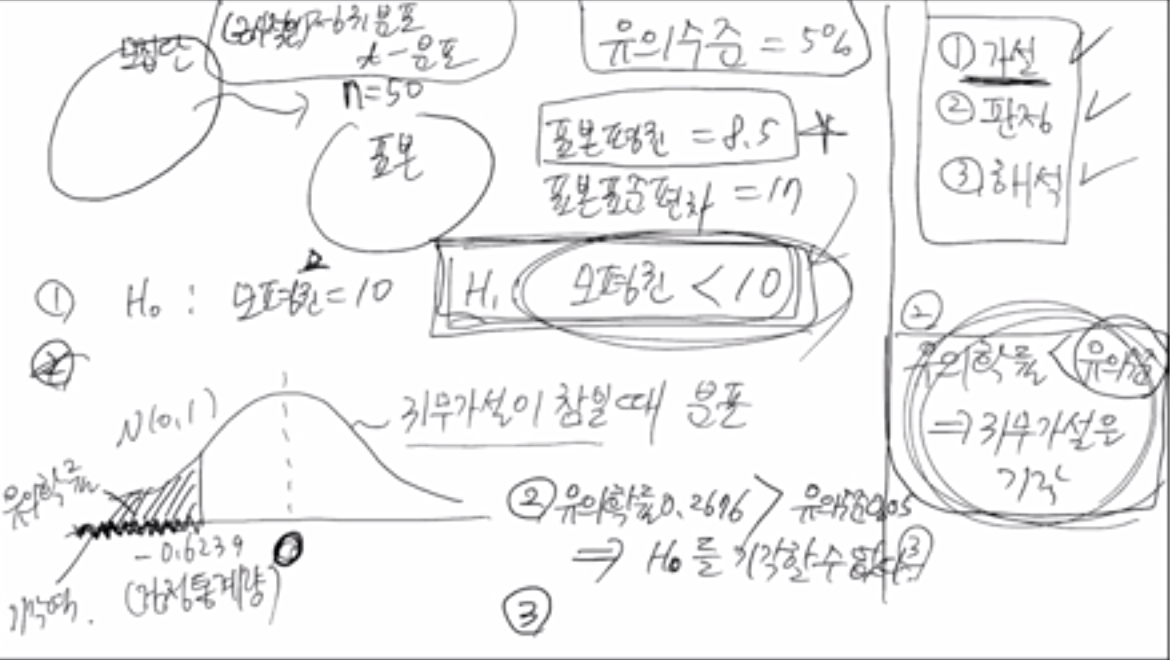 모집단
(근사적) 정규분포
t-분포
n=50
표본
유의수준 = 5%
표본평균 = 8.5
표본표준편차 = 17
① 가설
② 판정
③ 해석
① H₀ : 모평균 = 10
H₁ 모평균 < 10
②
N(0,1)
귀무가설이 참일 때 분포
유의확률
-0.6239
0
(검정통계량)
기각역.
② 유의확률 0.2676 > 유의수준 0.05
⇒ H₀를 기각할 수 없다
③
③
②
유의확률 < 유의수준
⇒ 귀무가설은
기각